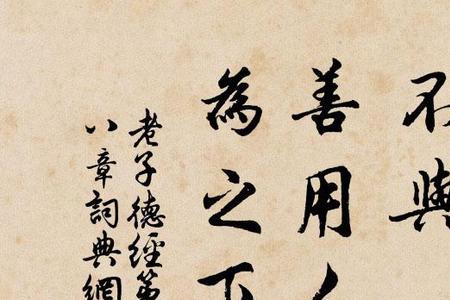 不與
善用人
為之下
老子德經第
八章詞典網